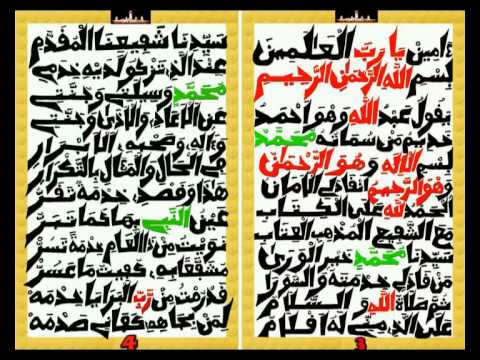 ءامين يا رب العلمين
بسم الله الرحمن الرحيم
يقول عبد الله وهو احمد
خديم من سماه محمد
بسم الاله وهو الرحمن
وهو الرحيم انقاد لي الامان
الحمد لله على الكتاب
مع الشفيع المذهب العتاب
سيدنا محمد خير الورى
من قاد لي خدمته والسورا
ثم صلاة الله والسلام
على الذي منى له اقلام
3
سيدنا شفيعنا المقدم
عند الذي تزكو لديه خدمي
محمد وسيلتي وجنتي
عن الاعادي والاذى وجنتي
وءاله وصحبه الابرار
في الحال والمئال بالتكرار
هذا وقصدي خدمة تقر
عين النبي بها كما تبر
نويت من ذا العام خدمة تسر
مشفعا به كفيت ما عسر
قد رمت من رب البرايا خدمه
لمن بجاهه كفاني صدمه
4